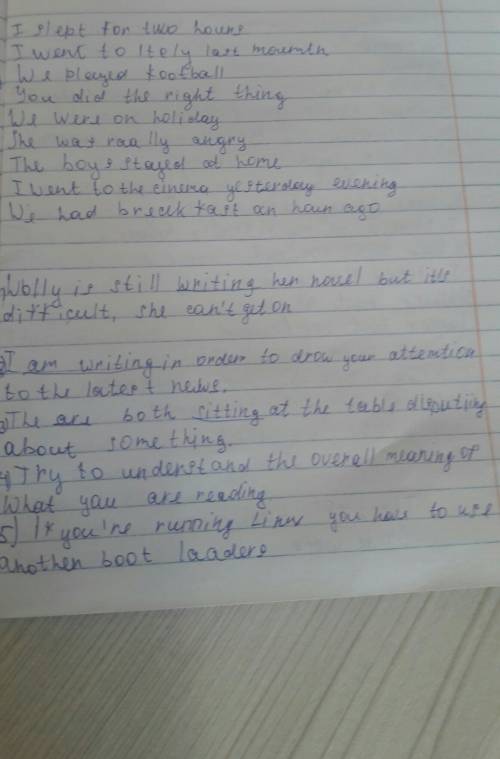 I slept for two hours
I went to Itely last mounth
We played football
You did the right thing
We were on holiday
She was raally angry
The boys stayed at home
I went to the cinema yesterday evening
We had breakfast an hour ago
Wolly is still writing her novel but it's
difficult, she can't get on
2) I am writing in order to drow your attention
to the latest news.
3) The are both sitting at the table disputing
about something.
4) Try to understand the overall meaning of
What you are reading
5) If you're running Linux you have to use
another boot loaders